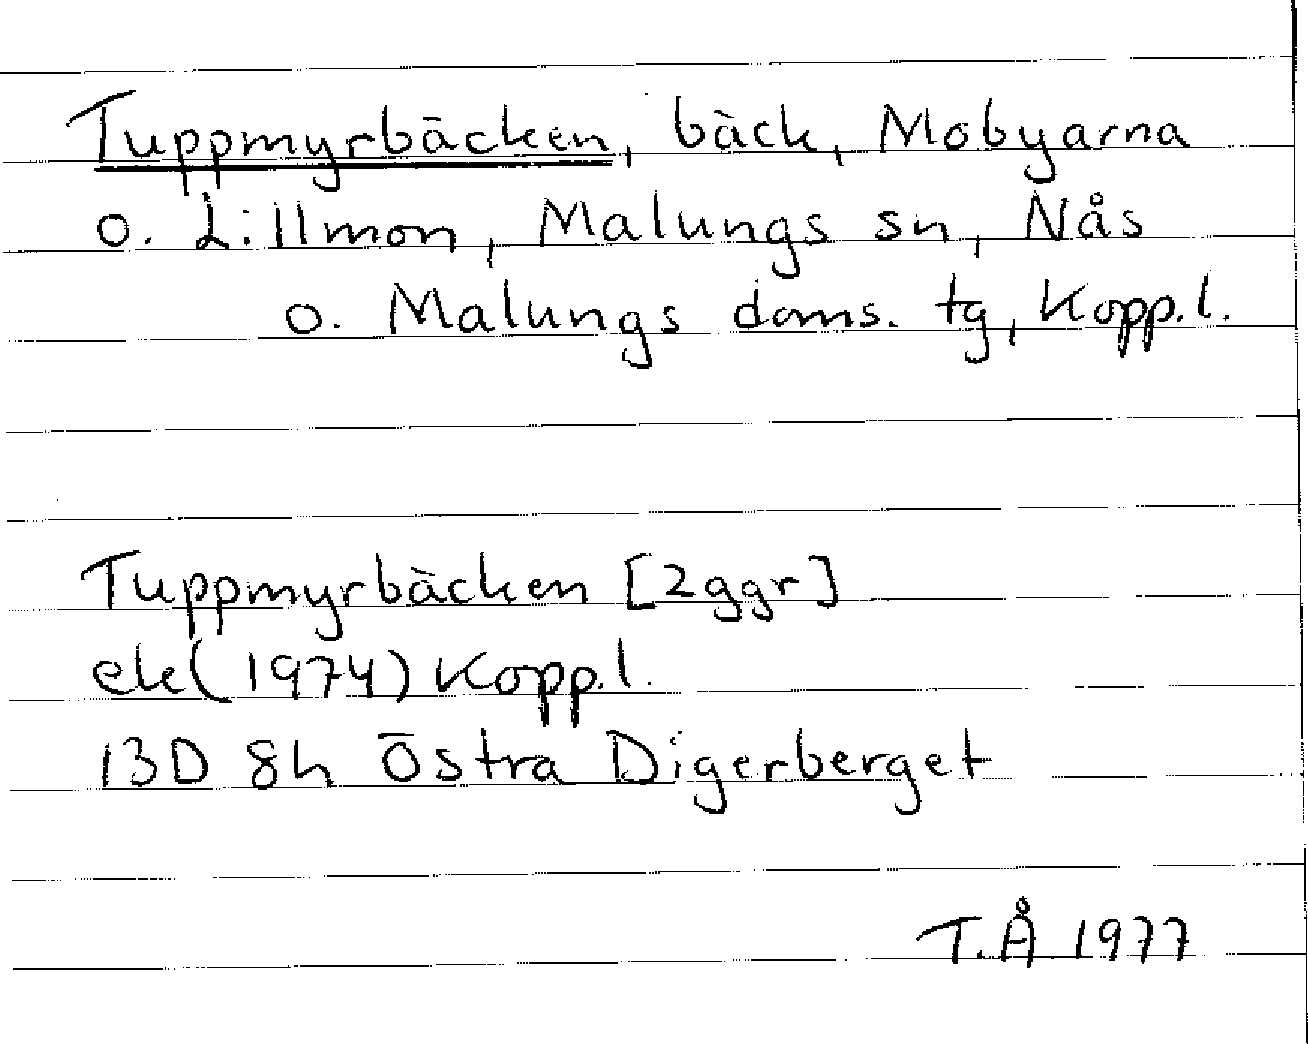 Tuppmyrbäcken, bäck, Mobyarna
o. Lillmon, Malungs sn, Nås
o. Malungs doms. tg, Kopp.l.
Tuppmyrbäcken [2ggr]
ek(1974) Kopp.l.
13D 8h Östra Digerberget
T.Å 1977